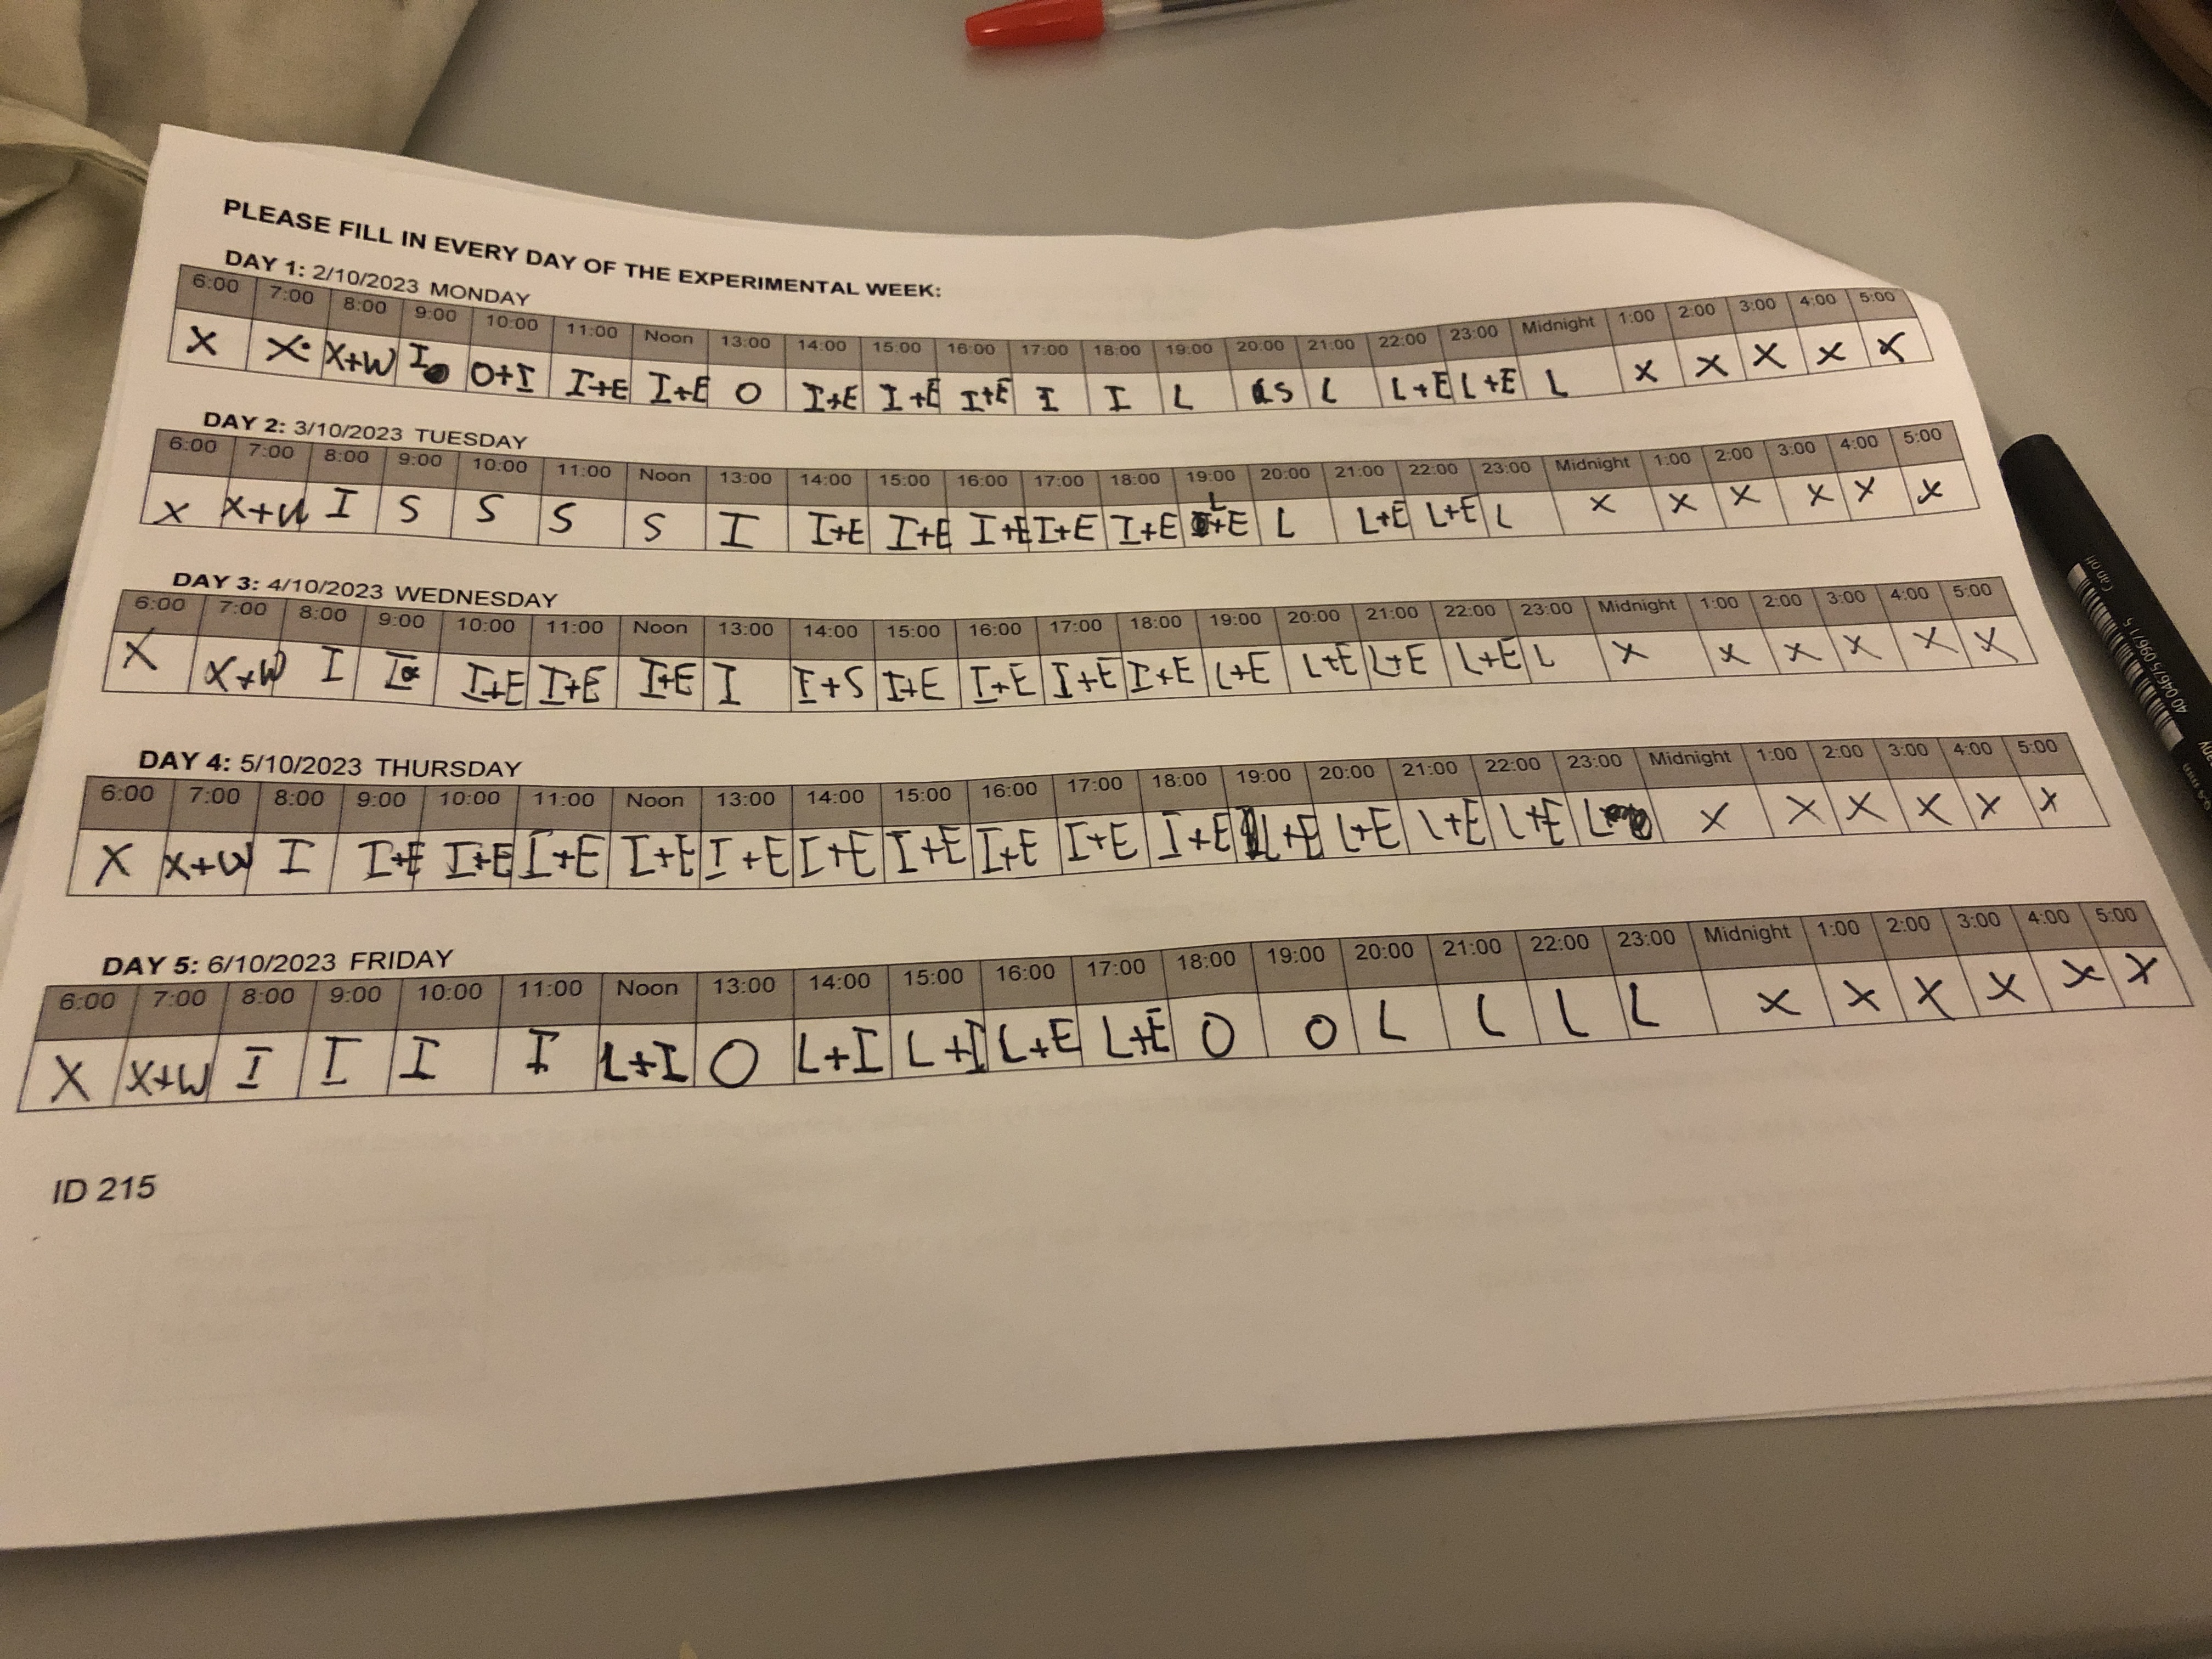 PLEASE FILL IN EVERY DAY OF THE EXPERIMENTAL WEEK:
DAY 1: 2/10/2023 MONDAY
6:00 7:00 8:00 9:00 10:00 11:00 Noon 13:00 14:00 15:00 16:00 17:00 18:00 19:00 20:00 21:00 22:00 23:00 Midnight 1:00 2:00 3:00 4:00 5:00
X X X+W I O+I I+E I+E O I+E I+E I+E I I L S L L+E L+E L X X X X X
DAY 2: 3/10/2023 TUESDAY
6:00 7:00 8:00 9:00 10:00 11:00 Noon 13:00 14:00 15:00 16:00 17:00 18:00 19:00 20:00 21:00 22:00 23:00 Midnight 1:00 2:00 3:00 4:00 5:00
X X+W I S S S S I I+E I+E I+E I+E I+E L+E L L+E L+E L X X X X X X
DAY 3: 4/10/2023 WEDNESDAY
6:00 7:00 8:00 9:00 10:00 11:00 Noon 13:00 14:00 15:00 16:00 17:00 18:00 19:00 20:00 21:00 22:00 23:00 Midnight 1:00 2:00 3:00 4:00 5:00
X X+W I I I+E I+E I+E I I+S I+E I+E I+E I+E L+E L+E L+E L+E L X X X X X X
DAY 4: 5/10/2023 THURSDAY
6:00 7:00 8:00 9:00 10:00 11:00 Noon 13:00 14:00 15:00 16:00 17:00 18:00 19:00 20:00 21:00 22:00 23:00 Midnight 1:00 2:00 3:00 4:00 5:00
X X+W I I+E I+E I+E I+E I+E I+E I+E I+E I+E I+E L+E L+E L+E L+E L X X X X X X
DAY 5: 6/10/2023 FRIDAY
6:00 7:00 8:00 9:00 10:00 11:00 Noon 13:00 14:00 15:00 16:00 17:00 18:00 19:00 20:00 21:00 22:00 23:00 Midnight 1:00 2:00 3:00 4:00 5:00
X X+W I I I I L+I O L+I L+I L+E L+E O O L L L L X X X X X X
ID 215
Cap off
40 04675 09671 5
0.4 mm